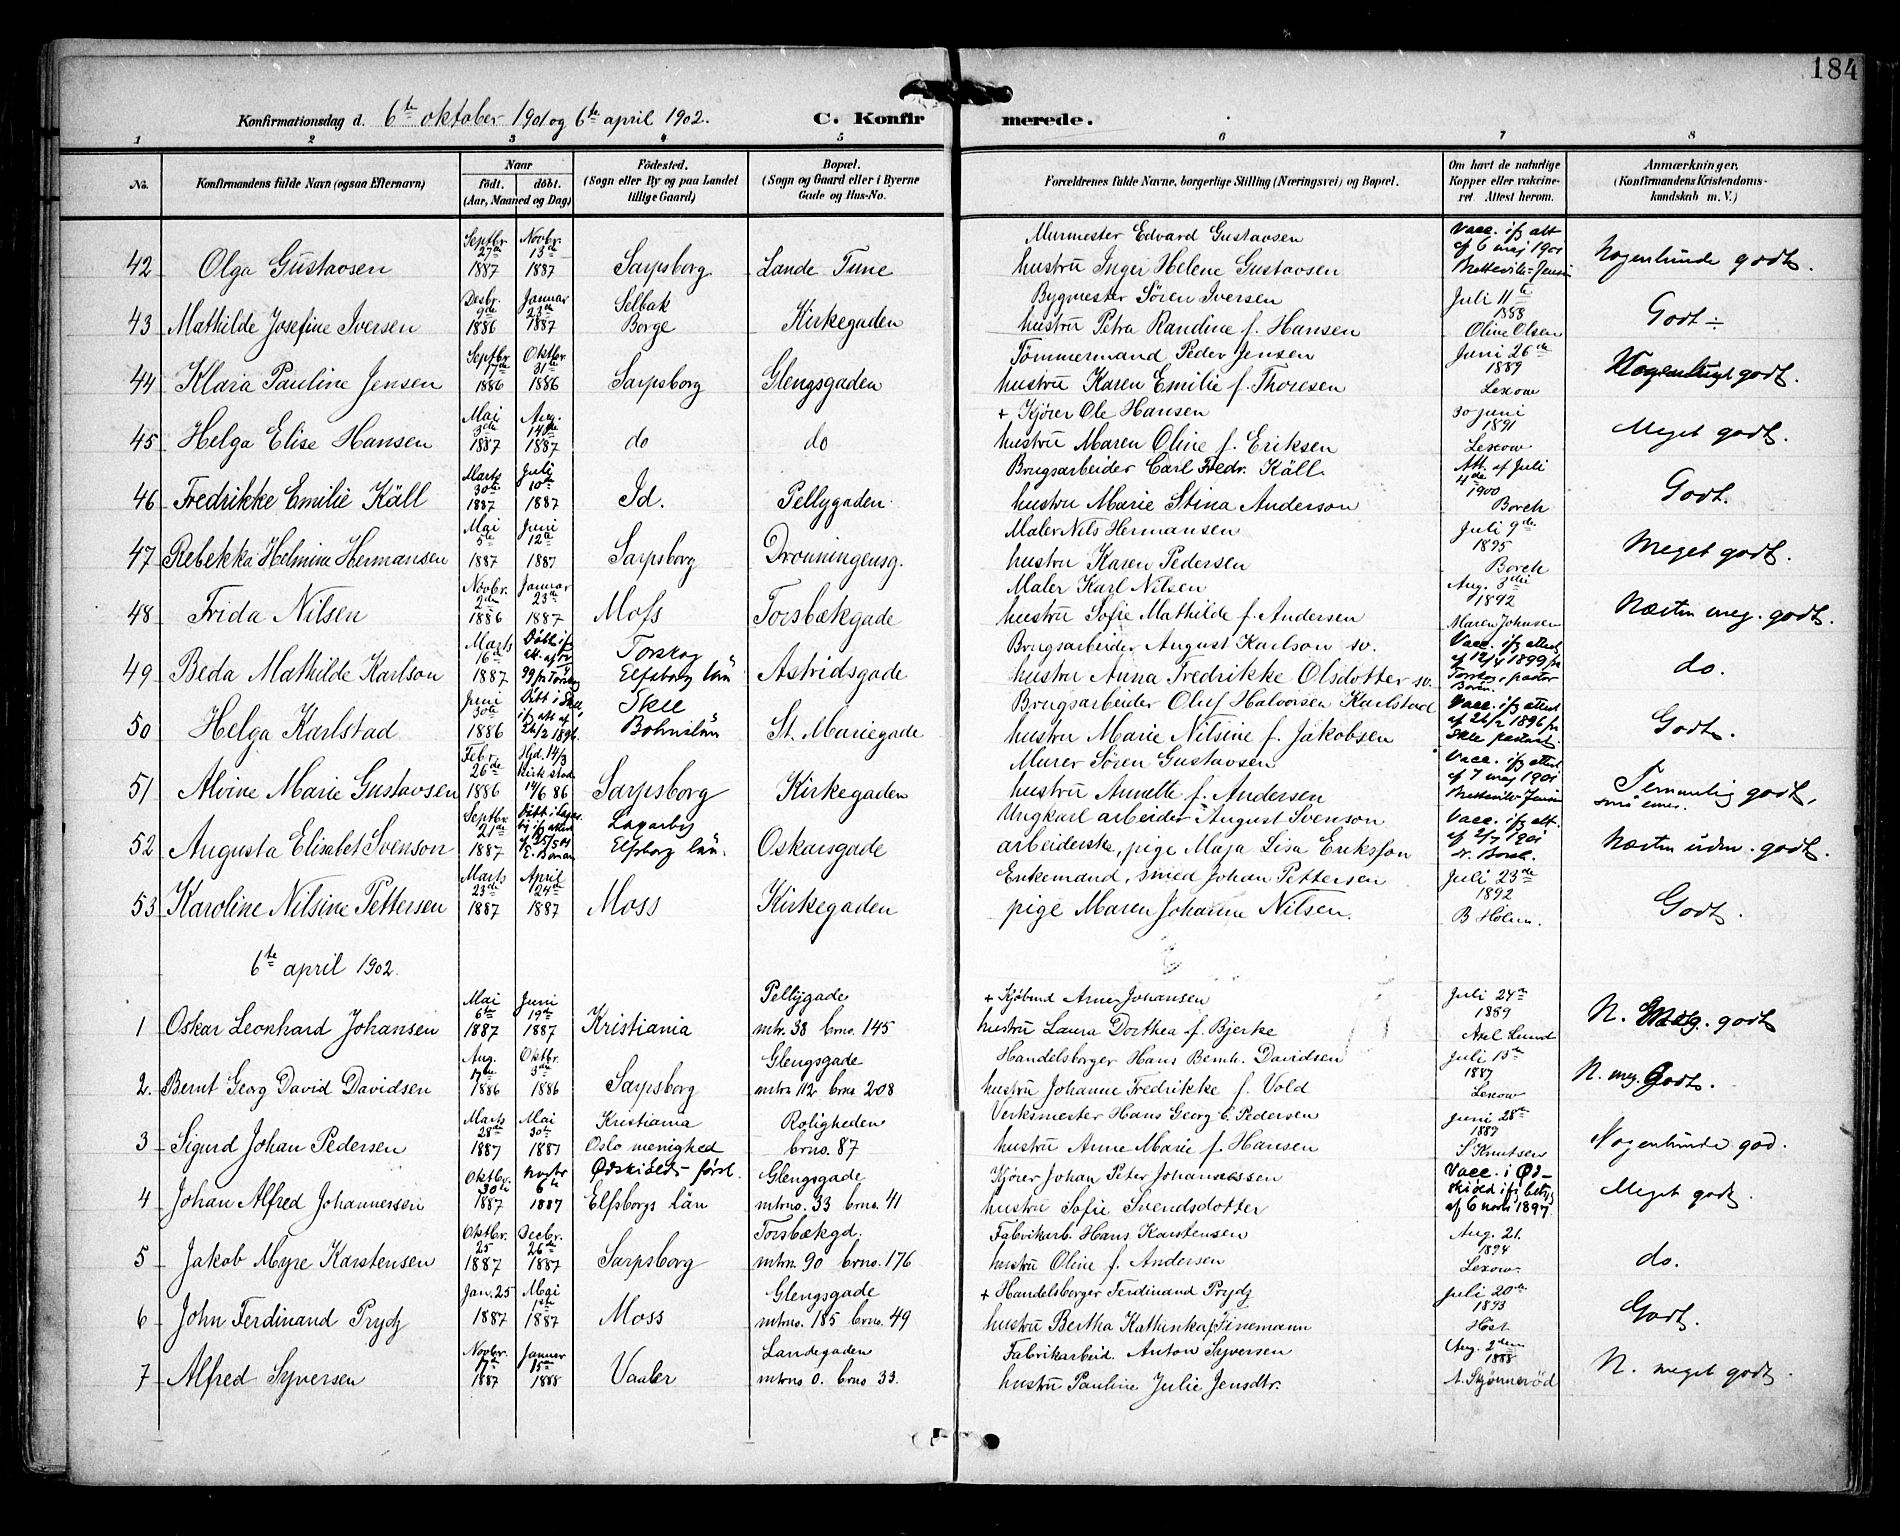 184
Konfirmationsdag d. 6te oktober 1901 og 6te april 1902. C. Konfirmerede.
1 2 3 4 5 6 7 8
No. Konfirmandens fulde Navn (ogsaa Efternavn) Naar født. døbt. (Aar, Maaned og Dag) Fødested. (Sogn eller By og paa Landet tillige Gaard) Bopæl. (Sogn og Gaard eller i Byerne Gade og Hus-No. Forældrenes fulde Navne, borgerlige Stilling (Næringsvei) og Bopæl. Om havt de naturlige Kopper eller vakcineret. Attest herom. Anmærkninger. (Konfirmandens Kristendomskundskab m. V.)
42 Olga Gustavsen Septbr. 27de 1887 Novbr. 13de 1887 Sarpsborg Lande Tune Murmester Edvard Gustavsen hustru Inger Helene Gustavsen Vacc. ifg att af 6 maj 1901 Nogenlunde godt.
43 Mathilde Josefine Iversen Desbr. 9de 1886 Januar 23de 1887 Selbak Borge Kirkegaden Bygmester Søren Iversen hustru Petra Randine f. Hansen Juli 11te 1888 Oline Olsen Godt ÷
44 Klara Pauline Jensen Septbr 17de 1886 Oktbr 31te 1886 Sarpsborg Glengsgaden Tømmermand Peder Jensen hustru Karen Emilie f. Thoresen Juni 26de 1889 Lexow godt.
45 Helga Elise Hansen Mai 3de 1887 Aug. 14de 1887 do do + Kjører Ole Hansen hustru Maren Oline f. Eriksen 30 juni 1891 Lexow Meget godt.
46 Fredrikke Emilie Käll Marts 30te 1887 Juli 10de 1887 Id. Pellygaden. Brugsarbeider Carl Fredr. Käll hustru Marie Stina Anderson Att. af Juli 4de 1900 Borch Godt.
47 Rebekka Helmine Hermansen Mai 5te 1887 Juni 12te 1887 Sarpsborg Dronningensg. Maler Nils Hermansen hustru Karen Pedersen Juli 9de 1895 Borch Meget godt.
48 Frida Nilsen Novbr. 2den 1886 Januar 23de 1887 Moss Torsbækgade Maler Karl Nilsen hustru Sofie Mathilde f. Andersen Aug. 3die 1892 Maren Johnsen Næsten meg. godt.
49 Beda Mathilde Karlson Marts 16de 1887 Døbt ifg att. af Torskog Elfsborg län Astridsgade Brugsarbeider August Karlson sv. hustru Anna Fredrikke Olsdotter sv. Vacc. ifg attest af 12/4 1899 fra Torskog pastor do.
50 Helga Karlstad Juni 30te 1886 Døbt i Skee, ifg att af 26/2 1896. Skee Bohuslän St. Mariegade Brugsarbeider Oluf Halvorsen Karlstad hustru Marie Nilsine f. Jakobsen Vacc. ifg attest af 26/2 1896 fra Skee pastorat. Godt.
51 Alvine Marie Gustavsen Febr. 26de 1886 Hjd. 14/3 Kirk stad 14/6 86 Sarpsborg Kirkegaden Murer Søren Gustavsen hustru Annette f. Andersen Vacc. ifg attest af 7 maj 1901 Temmelig godt,
52 Augusta Elisabet Svenson Septbr 21de 1887 Elfsborg län. Oskarsgade Ungkarl arbeider August Svenson arbeiderske, pige Maja Lisa Eriksson Vacc. ifg att. af 2/7 1901 Dr. Borch. Næsten uden. godt.
53 Karoline Nilsine Pettersen Marts 23de 1887 April 24de 1887 Moss Kirkegaden Enkemand, smed Johan Pettersen pige Maren Johanne Nilsen. Juli 23de 1892 B. Holm. Godt.
6te april 1902.
1 Oskar Leonhard Johansen Mai 6te 1887 Juni 19de 1887 Kristiania Pellygade mtr. 38 brno. 145 + Kjøbmd Arne Johansen hustru Laura Dorthea f. Bjerke Juli 24de 1889 Axel Lund N. Meg. godt
2. Bernt Georg David Davidsen Aug. 17de 1886 Oktbr. 3de 1886 Sarpsborg Glengsgade mtrn 112 brno 208 Handelsborger Hans Bernh. Davidsen hustru Johanne Fredrikke f. Vold Juli 15de 1887 Lexow N. meg. Godt.
3 Sigurd Johan Pedersen Marts 28de 1887 Mai 30te 1887 Kristiania Oslo menighed Roligheden brno. 87 Verksmester Hans Georg C. Pedersen hustru Anne Marie f. Hansen Juni 28de 1887 S Knutsen Nogenlunde god.
4 Johan Alfred Johannessen Oktbr. 30te 1887 novbr 6te 1887 Ødskiølds førs. Elfsborgs län Glengsgade mtrno. 33 brno. 41 Kjører Johan Peter Johannessen hustru Sofie Svendsdotter Vacc. i Ødskiöld ifg betyg af 6 novb 1897. Meget godt.
5 Jakob Myre Karstensen Oktbr. 25 1887 Decbr. 26de 1887 Sarpsborg Torsbækgd. mtrn. 90 brno. 176 Fabrikarb. Hans Karstensen hustru Oline f. Andersen Aug. 21. 1894 Lexow. do.
6 John Ferdinand Prydz Jan. 25 1887 Mai 1ste 1887 Moss Glengsgade mtrno. 185 brno. 49 + Handelsborger Ferdinand Prydz hustru Bertha Kathinka f Sinemann Juli 20de 1893 Høst Godt.
7 Alfred Syversen Novbr. 17de 1887 Januar 15de 1888 Vaaler Landegaden mtrno 0. brno 33. Fabrikarbeid. Anton Syversen hustru Pauline Julie Jensdtr. Aug. 2den 1888 A. Skjønnerød N. meget godt.